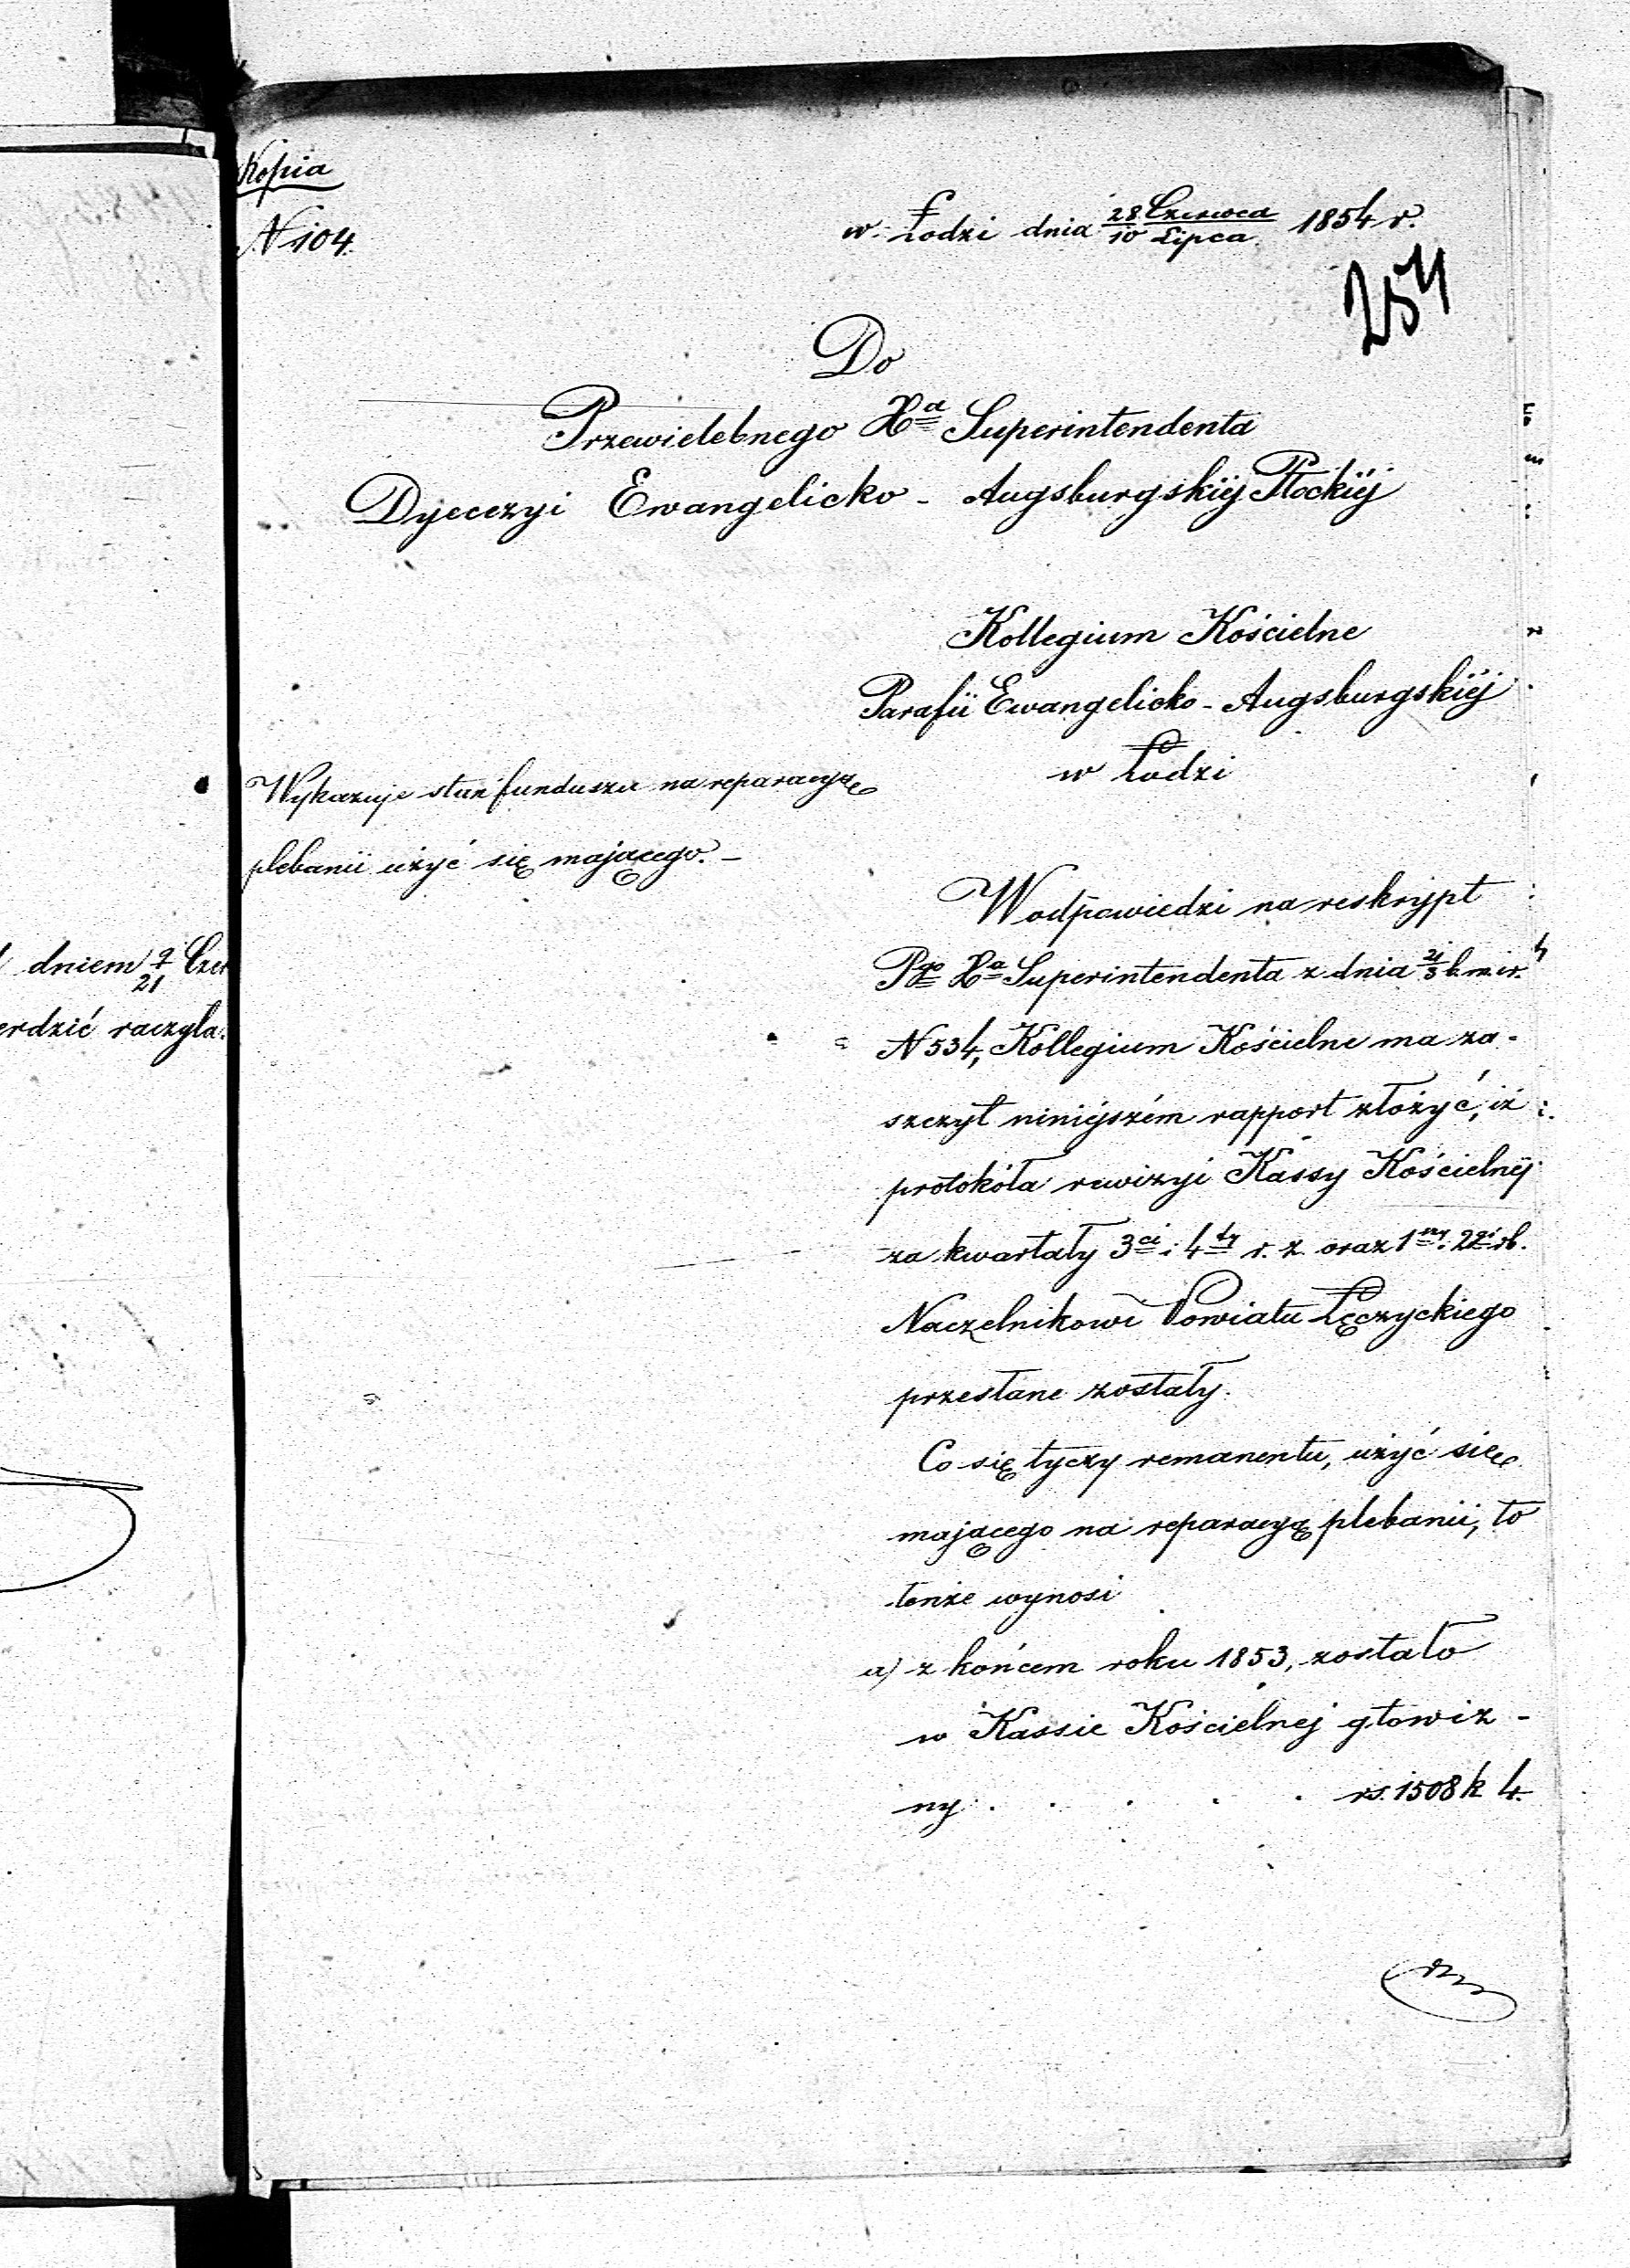 Kopia
N 104.
w Łodzi dnia 28 Czerwca / 10 Lipca 1854 r.
254
Do
Przewielebnego Xa Superintendenta
Dyecezyi Ewangelicko - Augsburgskiéj Płockiéj
Kollegium Kościelne
Parafii Ewangelicko - Augsburgskiéj
w Łodzi
Wykazuje stan funduszu na reparacyę
plebanii użyć się mającego. -
W odpowiedzi na reskrypt
Pgo Xa Superintendenta z dnia 21/3 b. m. i r.
N 534, Kollegium Kościelne ma za-
szczyt niniéjszém rapport złożyć, iż
protokóła rewizyi Kassy Kościelnéj
za kwartały 3ci i 4ty r. z. oraz 1szy i 2gi rb.
Naczelnikowi Powiatu Łęczyckiego
przesłane zostały.
Co się tyczy remanentu, użyć się
mającego na reparacyę plebanii, to
tenże wynosi
a) z końcem roku 1853, zostało
w Kassie Kościelnej głowiz-
ny . . . . . rs. 1508 k 4.
dniem 9/21 Czer
erdzić raczyła.